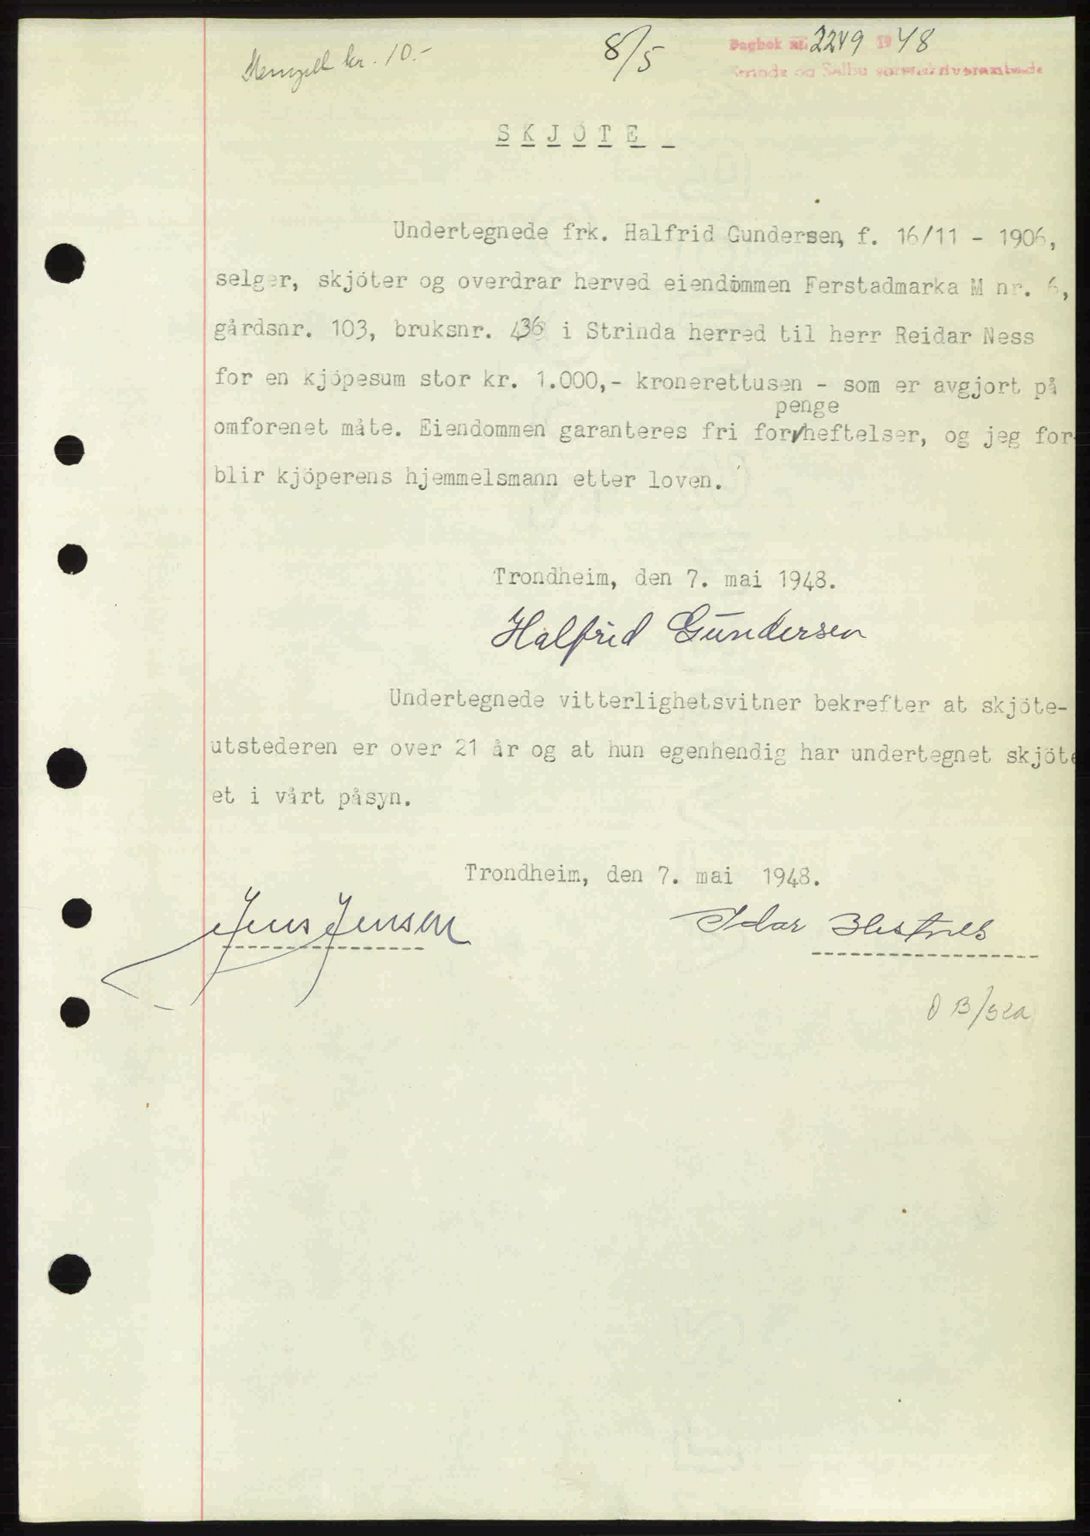 Stempell kr. 10.-
8/5
Dagbok nr. 2249 1948
Strinda og Selbu sorenskriverembede
SKJÖTE_
Undertegnede frk. Halfrid Gundersen, f. 16/11 - 1906,
selger, skjöter og overdrar herved eiendommen Ferstadmarka M nr. 6,
gårdsnr. 103, bruksnr. 436 i Strinda herred til herr Reidar Ness
for en kjöpesum stor kr. 1.000,- kronerettusen - som er avgjort på
penge
omforenet måte. Eiendommen garanteres fri for heftelser, og jeg for-
blir kjöperens hjemmelsmann etter loven.
Trondheim, den 7. mai 1948.
Halfrid Gundersen
Undertegnede vitterlighetsvitner bekrefter at skjöte-
utstederen er over 21 år og at hun egenhendig har undertegnet skjöt
et i vårt påsyn.
Trondheim, den 7. mai 1948.
Jens Jensen
Idar